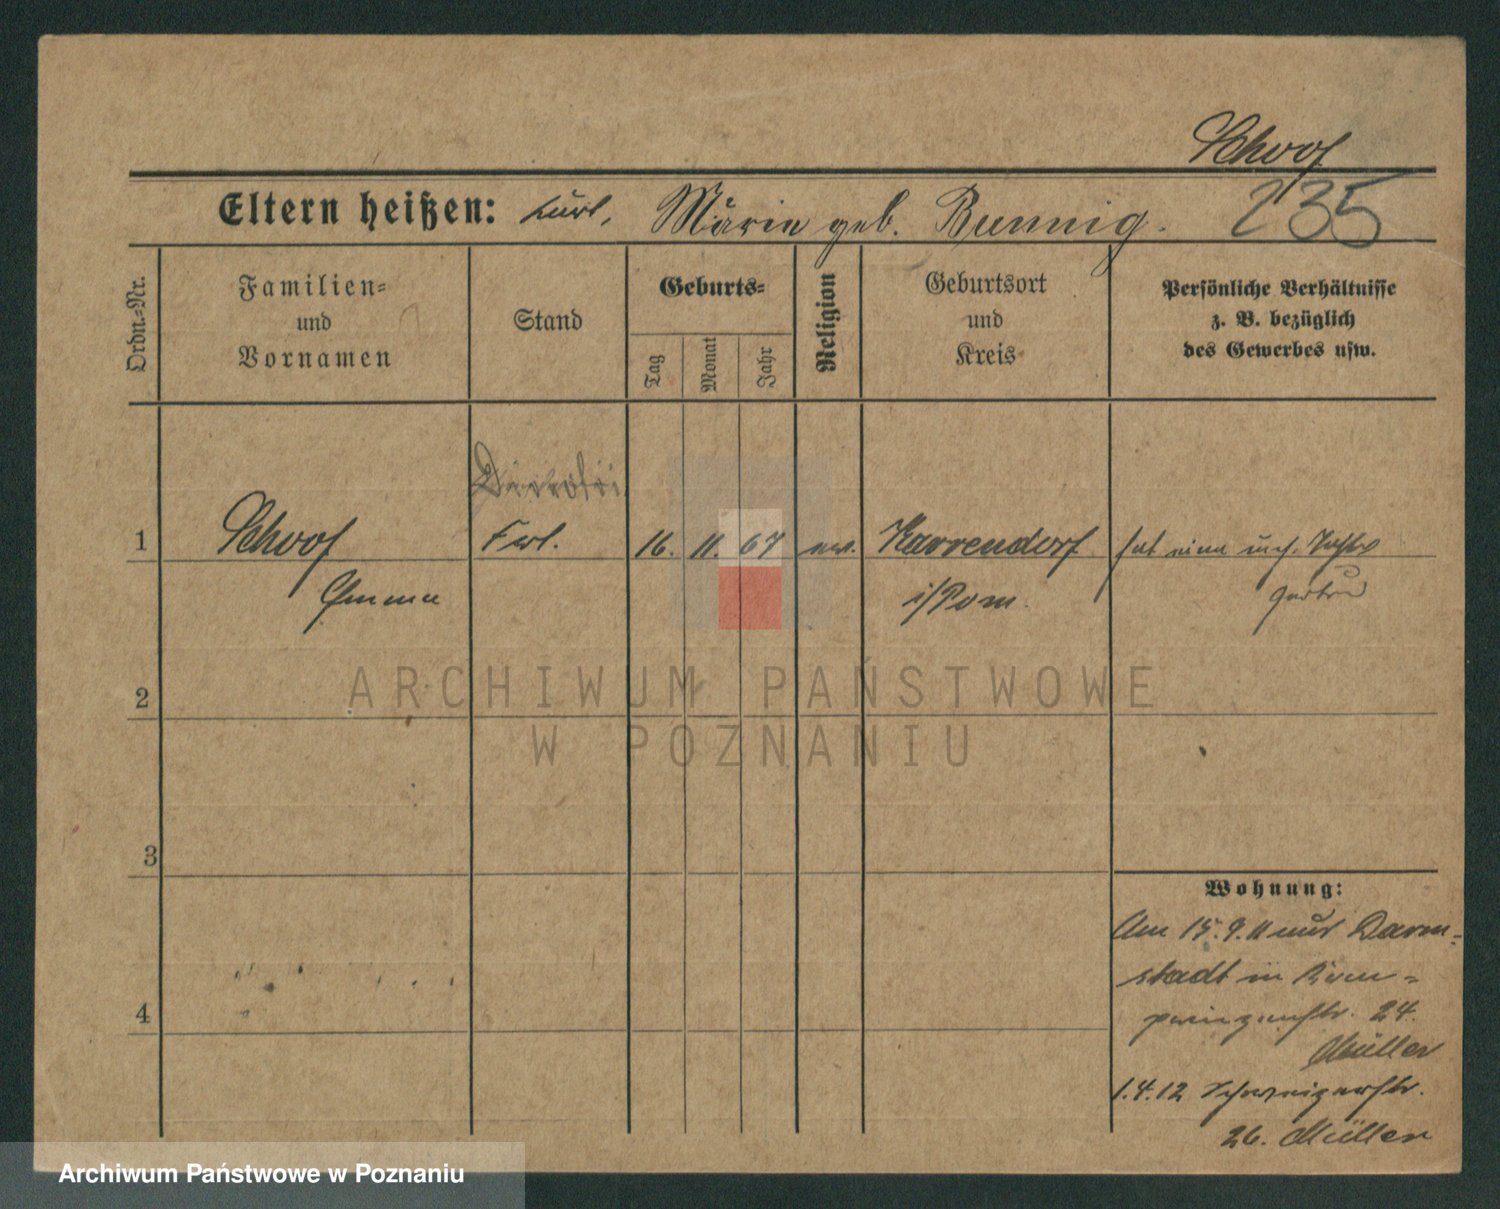 Schoof
Eltern heißen: Karl, Marie geb. Bunnig. 235
Ordn.-Nr.
Familien-
und
Vornamen
Stand
Geburts-
Tag
Monat
Jahr
Religion
Geburtsort
und
Kreis
Persönliche Verhältnisse
z. B. bezüglich
des Gewerbes usw.
1 Schoof Frl. 16. 11. 67 ev. Karrendorf hat eine
Emma i/Pom.
2
ARCHIWUM PAŃSTWOWE
W POZNANIU
3
Wohnung:
Am 15.9.11 aus Darm-
stadt in Kron-
prinzenstr. 24.
4
Müller
1.4.12 Schweizerstr.
26. Müller
Archiwum Państwowe w Poznaniu